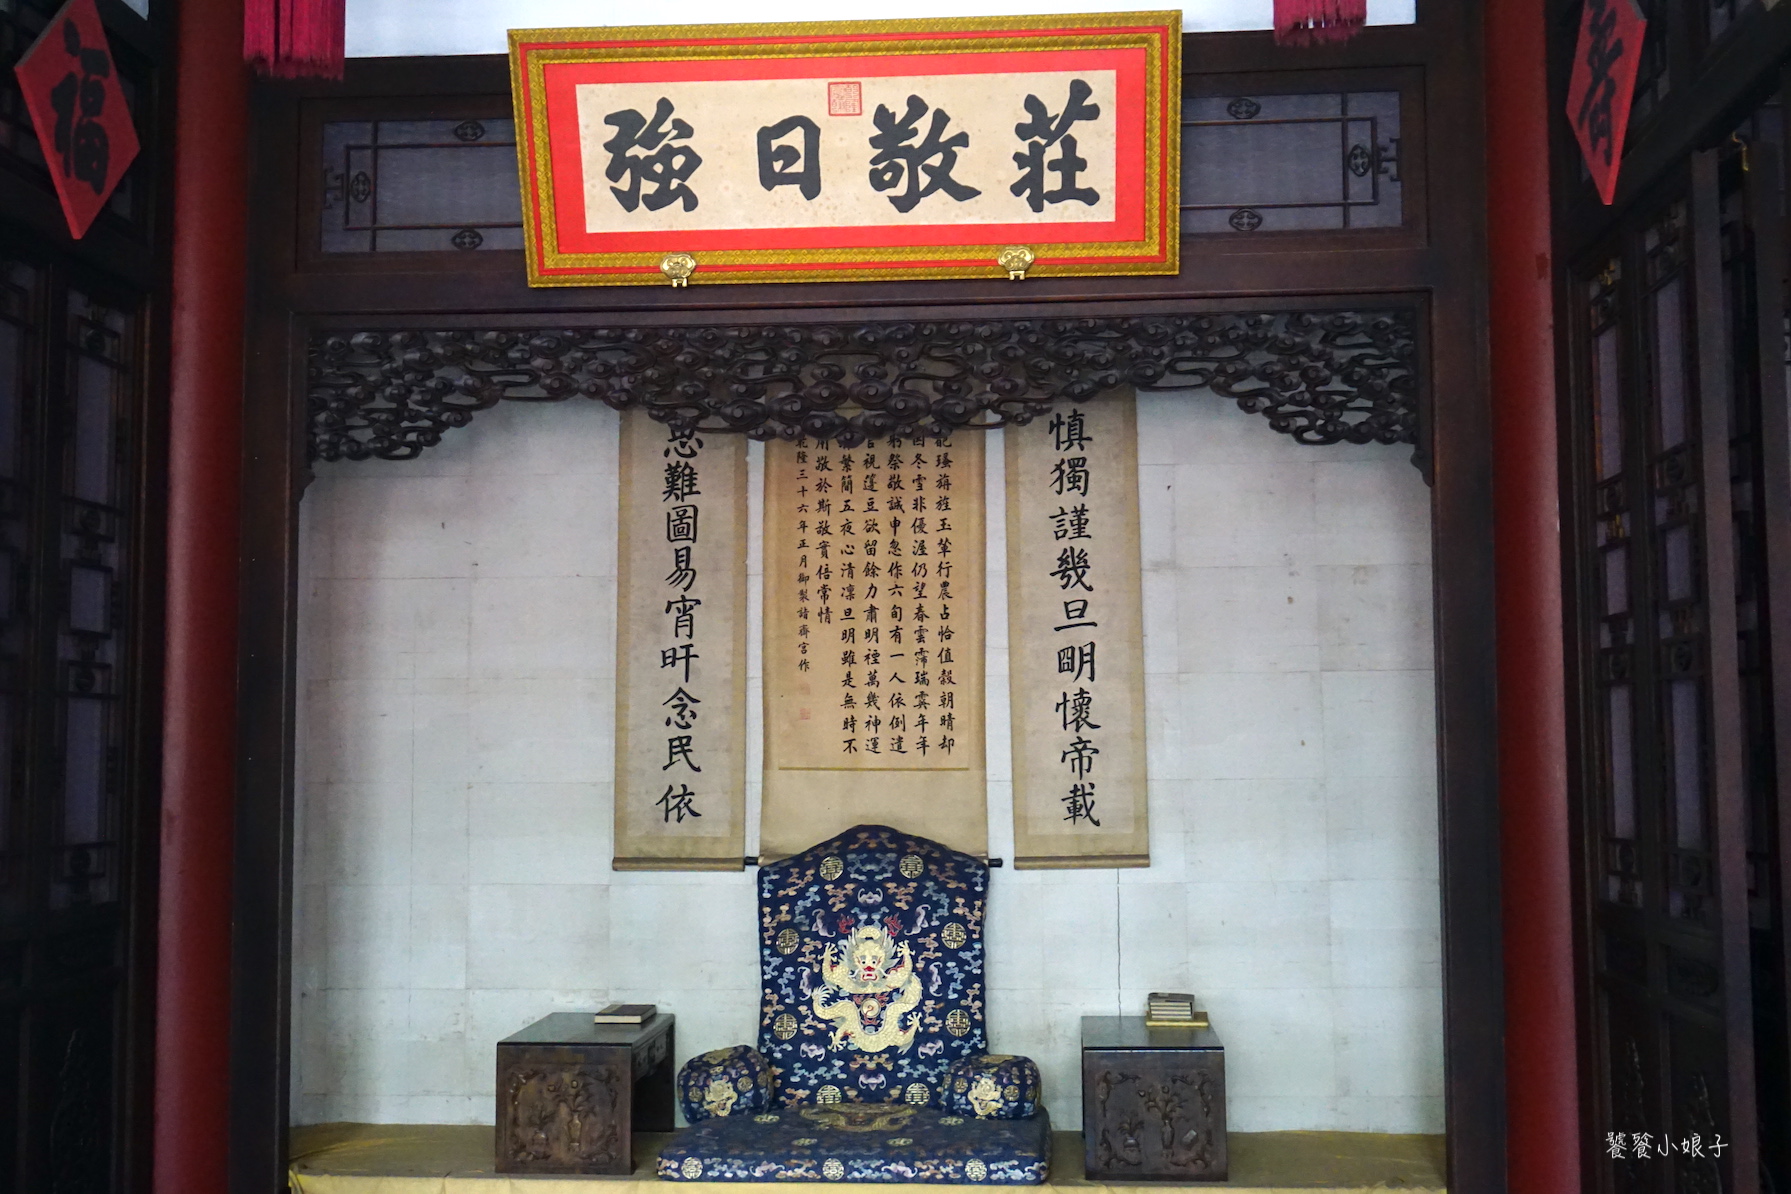 莊敬日強
福
慎獨謹幾旦明懷帝載
龍旂旌玉輦行農占恰值穀朝晴却
因冬雪非優渥仍望春雲霈瑞霙年年
躬祭敬誠申忽作六旬有一人依倒遣
視籩豆欲留餘力肅明禋萬幾神運
繁簡五夜心清凜旦明雖是無時不
用敬於斯敬實倍常情
乾隆三十六年正月御製詣齋宮作
思難圖易宵旰念民依
饕餮小娘子